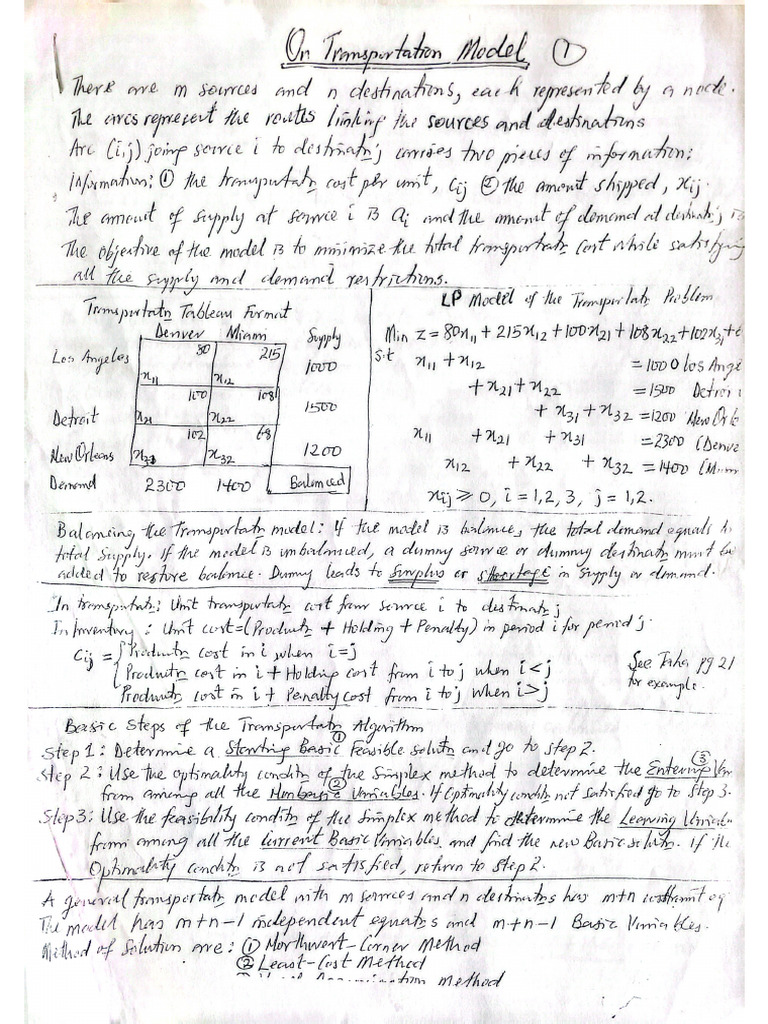 On Transportation Model ①
There are m sources and n destinations, each represented by a node.
The arcs represent the routes linking the sources and destinations
Arc (i,j) joing source i to destinatn j carries two pieces of information:
Information: ① the transportatn cost per unit, Cij ② the amount shipped, xij.
The amount of supply at source i is ai and the amount of demand at destinatn j is
The objective of the model is to minimize the total transportatn cost while satisfying
all the supply and demand restrictions.
Transportatn Tableau Format
Denver Miami Supply
Los Angeles 80 215 1000
x11 x12
100 108
Detroit x21 x22 1500
102 68
New Orleans x31 x32 1200
Demand 2300 1400 Balanced
LP Model of the Transportatn Problem
Min z = 80x11 + 215x12 + 100x21 + 108x22 + 102x31 +
S.t x11 + x12 = 1000 Los Ange
+ x21 + x22 = 1500 Detroi
+ x31 + x32 = 1200 New Orle
x11 + x21 + x31 = 2300 (Denve
x12 + x22 + x32 = 1400 (Miam
xij ≥ 0, i = 1,2,3, j = 1,2.
Balancing the Transportatn model: If the model is balance, the total demand equals
total supply. If the model is unbalanced, a dummy source or dummy destinatn must be
added to restore balance. Dumy leads to Surplus or shortage in supply or demand.
In transportatn: Unit transportatn cost from source i to destinatn j
In Inventory: Unit cost = (Productn + Holding + Penalty) in period i for period j.
Cij = { Productn cost in i when i=j
Productn cost in i + Holding cost from i to j when i<j
Productn cost in i + Penalty cost from i to j when i>j
See Taha pg 21
for example.
Basic Steps of the Transportatn Algorithm
Step 1: Determine a Starting Basic ① Feasible solutn and go to step 2.
Step 2: Use the optimality conditn of the Simplex method to determine the Entering ③ Var
from among all the Nonbasic ② Variables. If Optimality conditn not satisfied go to Step 3.
Step 3: Use the feasibility conditn of the simplex method to determine the Leaving Variab
from among all the Current Basic Variables, and find the new Basic solutn. If the
Optimality conditn is not satisfied, return to step 2.
A general transportatn model with m sources and n destinatns has m+n constraint eq
The model has m+n-1 independent equatns and m+n-1 Basic Variables.
Method of Solution are: ① Northwest-Corner Method
② Least-Cost Method
method